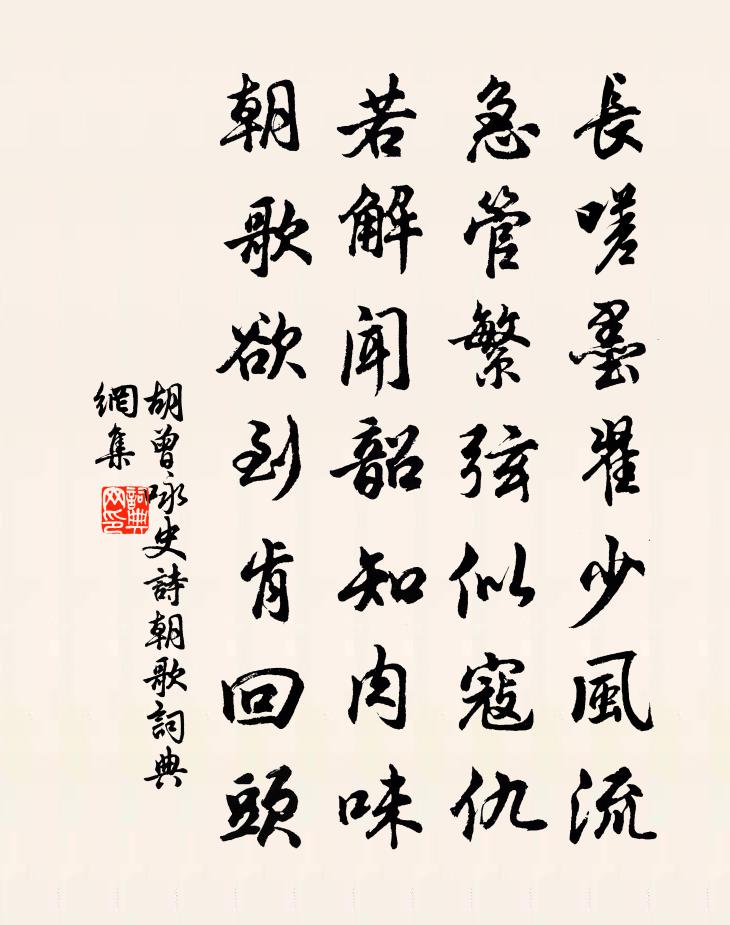 長嗟墨翟少風流
急管繁弦似寇仇
若解聞韶知肉味
朝歌欲到肯回頭
胡曾咏史詩朝歌詞典
網集
詞典
网印